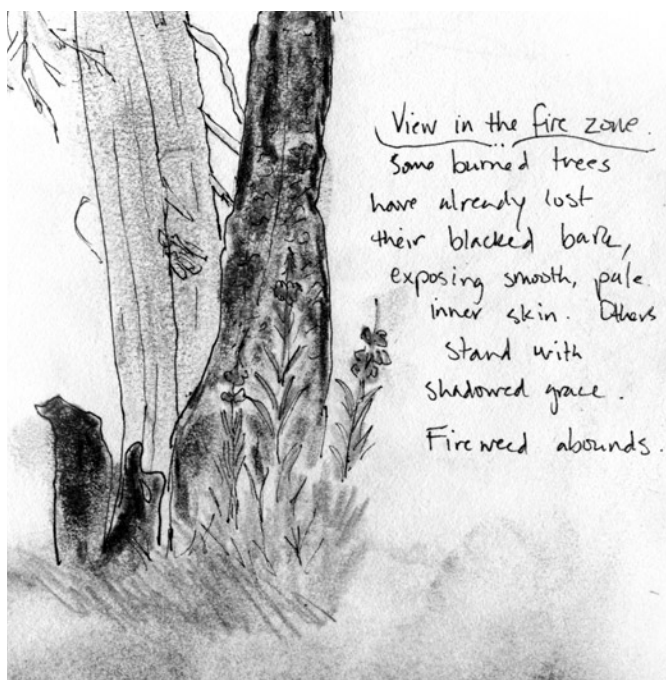 View in the fire zone.
Some burned trees
have already lost
their blacked bark,
exposing smooth, pale
inner skin. Others
stand with
shadowed grace.
Fireweed abounds.